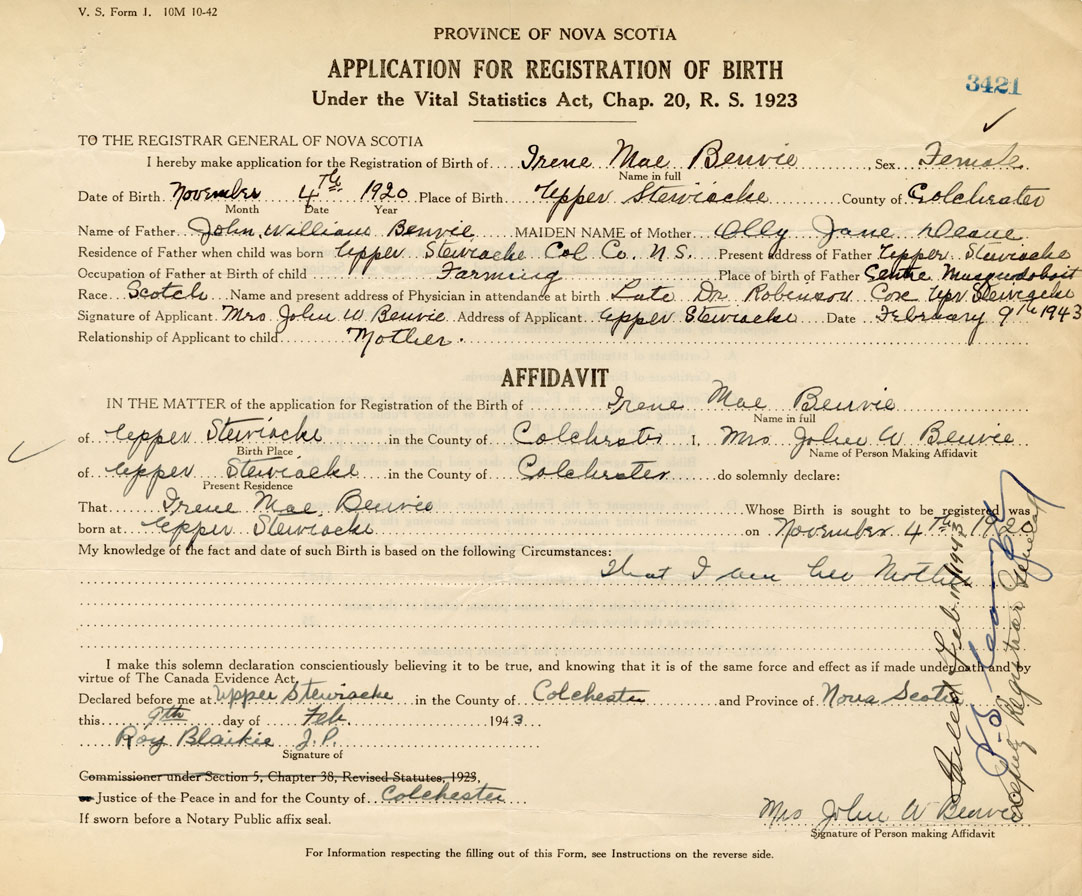 V. S. Form 1. 10M 10-42
PROVINCE OF NOVA SCOTIA
APPLICATION FOR REGISTRATION OF BIRTH
3421
Under the Vital Statistics Act, Chap. 20, R. S. 1923
TO THE REGISTRAR GENERAL OF NOVA SCOTIA
I hereby make application for the Registration of Birth of Irene Mae Benvie Sex Female
Name in full
Date of Birth November 4th 1920 Place of Birth Upper Stewiacke County of Colchester
Month Date Year
Name of Father John William Benvie MAIDEN NAME of Mother Olly Jane Deane
Residence of Father when child was born Upper Stewiacke Col Co. N.S. Present address of Father Upper Stewiacke
Occupation of Father at Birth of child Farming Place of birth of Father Centre Musquodoboit
Race Scotch Name and present address of Physician in attendance at birth Late Dr Robinson Cox Upr Stewiacke
Signature of Applicant Mrs John W Benvie Address of Applicant Upper Stewiacke Date February 9th 1943
Relationship of Applicant to child Mother.
AFFIDAVIT
IN THE MATTER of the application for Registration of the Birth of Irene Mae Benvie
Name in full
of Upper Stewiacke in the County of Colchester I, Mrs John W Benvie
Birth Place Name of Person Making Affidavit
of Upper Stewiacke in the County of Colchester do solemnly declare:
Present Residence
That Irene Mae Benvie Whose Birth is sought to be registered was
born at Upper Stewiacke on November 4th 1920
My knowledge of the fact and date of such Birth is based on the following Circumstances:
That I am her Mother
I make this solemn declaration conscientiously believing it to be true, and knowing that it is of the same force and effect as if made under oath and by
virtue of The Canada Evidence Act,
Declared before me at Upper Stewiacke in the County of Colchester and Province of Nova Scotia
this 9th day of Feb. 1943
Roy Blaikie J.P.
Signature of
Commissioner under Section 5, Chapter 38, Revised Statutes, 1923,
or Justice of the Peace in and for the County of Colchester
If sworn before a Notary Public affix seal.
Mrs John W Benvie
Signature of Person making Affidavit
For Information respecting the filling out of this Form, see Instructions on the reverse side.
Filed Feb. 1943
Deputy Registrar General